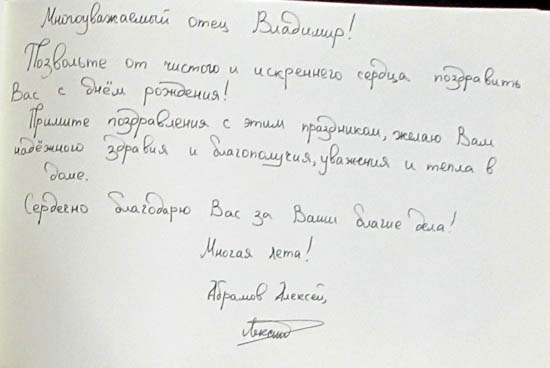 Многоуважаемый отец Владимир!
Позвольте от чистого и искреннего сердца поздравить
Вас с днём рождения!
Примите поздравления с этим праздником, желаю Вам
надёжного здравия и благополучия, уважения и тепла в
доме.
Сердечно благодарю Вас за Ваши благие дела!
Многая лета!
Абрамов Алексей,